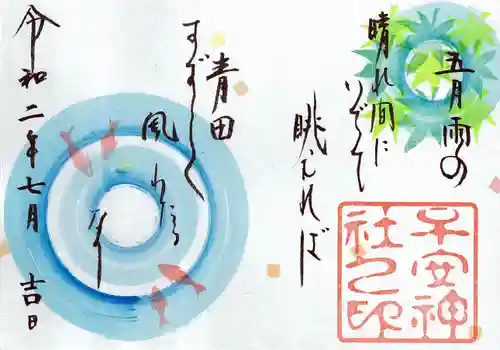 五月雨の
晴れ間に
いでて
眺むれば
青田
すずしく
風わたる
なり
令和二年七月 吉日
子安神
社之印